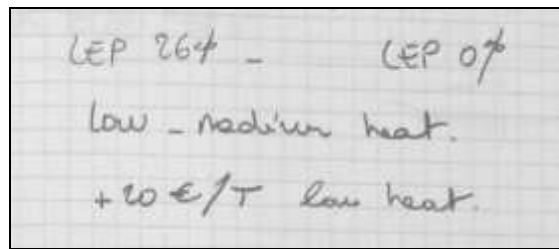 LEP 26% - LEP 0%
low - medium heat.
+20 €/T low heat.